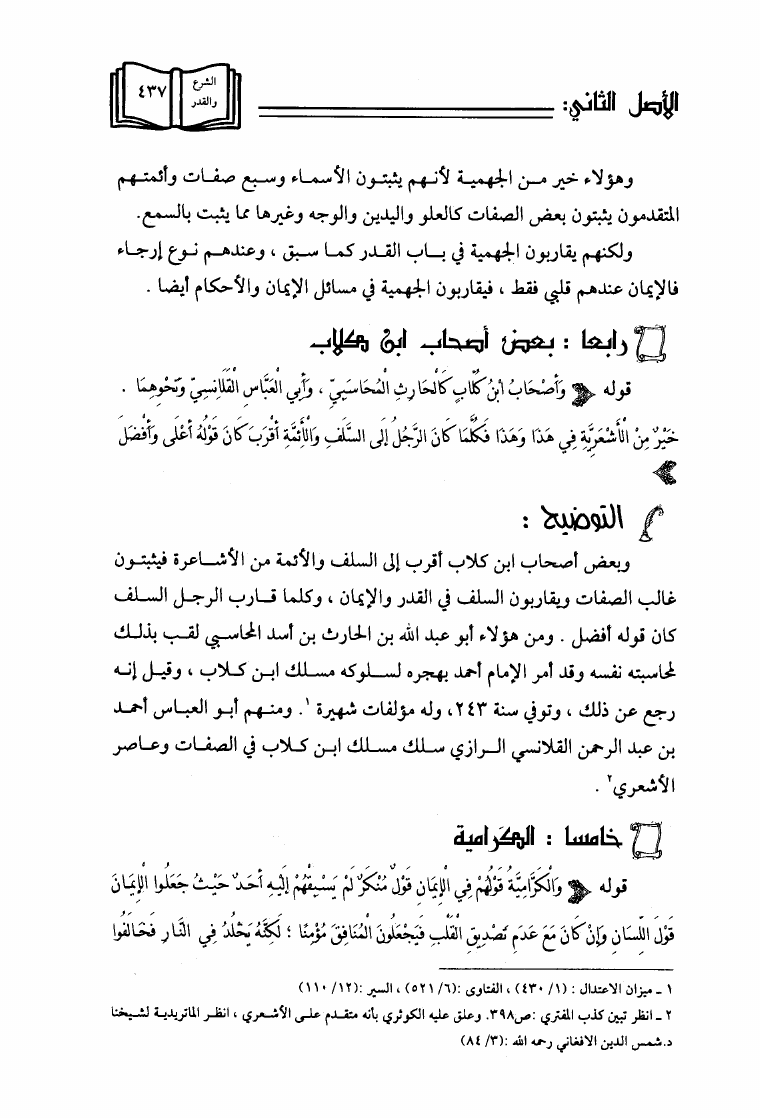 الأصل الثاني:
الشرع
والقدر
٤٣٧
وهؤلاء خير من الجهمية لأنهم يثبتون الأسماء وسبع صفات وأئمتهم
المتقدمون يثبتون بعض الصفات كالعلو واليدين والوجه وغيرها مما يثبت بالسمع.
ولكنهم يقاربون الجهمية في باب القدر كما سبق ، وعندهم نوع إرجاء
فالإيمان عندهم قلبي فقط ، فيقاربون الجهمية في مسائل الإيمان والأحكام أيضا .
رابعا : بعض أصحاب ابن كلاب
قوله وَأَصْحَابُ ابْنُ كُلَّابٍ كَالْحَارِثِ الْمُحَاسَبِيِّ ، وَأَبِي الْعَبَّاسِ الْقَلَانِسِيِّ وَنَحْوِهِمَا .
خَيْرٌ مِنْ الْأَشْعَرِيَّةِ فِي هَذَا وَهَذَا فَكُلَّمَا كَانَ الرَّجُلُ إلَى السَّلَفِ وَالْأَئِمَّةِ أَقْرَبَ كَانَ قَوْلُهُ أَعْلَى وَأَفْضَلَ
التوضيح :
وبعض أصحاب ابن كلاب أقرب إلى السلف والأئمة من الأشاعرة فيثبتون
غالب الصفات ويقاربون السلف في القدر والإيمان ، وكلما قارب الرجل السلف
كان قوله أفضل . ومن هؤلاء أبو عبد الله بن الحارث بن أسد المحاسبي لقب بذلك
لمحاسبته نفسه وقد أمر الإمام أحمد بهجره لسلوكه مسلك ابن كلاب ، وقيل إنه
رجع عن ذلك ، وتوفي سنة ٢٤٣، وله مؤلفات شهيرة ١. ومنهم أبو العباس أحمد
بن عبد الرحمن القلانسي الرازي سلك مسلك ابن كلاب في الصفات وعاصر
الأشعري٢ .
خامسا : الكرامية
قوله وَالْكَرَّامِيَّةُ قَوْلُهُمْ فِي الْإِيمَانِ قَوْلٌ مُنْكَرٌ لَمْ يَسْبِقْهُمْ إلَيْهِ أَحَدٌ حَيْثُ جَعَلُوا الْإِيمَانَ
قَوْلَ اللِّسَانِ وَإِنْ كَانَ مَعَ عَدَمِ تَصْدِيقِ الْقَلْبِ فَيَجْعَلُونَ الْمُنَافِقَ مُؤْمِنًا ؛ لَكِنَّهُ يَخْلُدُ فِي النَّارِ فَخَالَفُوا
١ ـ ميزان الاعتدال : (١/ ٤٣٠) ، الفتاوى :(٦/ ٥٢١) ، السير :(١٢/ ١١٠)
٢ ـ انظر تبين كذب المفتري :ص٣٩٨. وعلق عليه الكوثري بأنه متقدم على الأشعري ، انظر الماتريدية لشيخنا
د.شمس الدين الافغاني رحمه الله :(٣/ ٨٤)